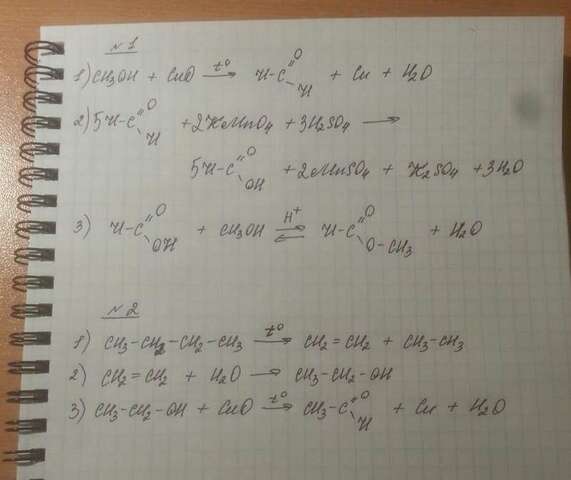 №1
1) CH3OH + CuO t° → H-C=O-H + Cu + H2O
2) 5H-C=O-H + 2KMnO4 + 3H2SO4 →
5H-C=O-OH + 2MnSO4 + K2SO4 + 3H2O
3) H-C=O-OH + CH3OH H+ ⇌ H-C=O-O-CH3 + H2O
№2
1) CH3-CH2-CH2-CH3 t° → CH2=CH2 + CH3-CH3
2) CH2=CH2 + H2O → CH3-CH2-OH
3) CH3-CH2-OH + CuO t° → CH3-C=O-H + Cu + H2O